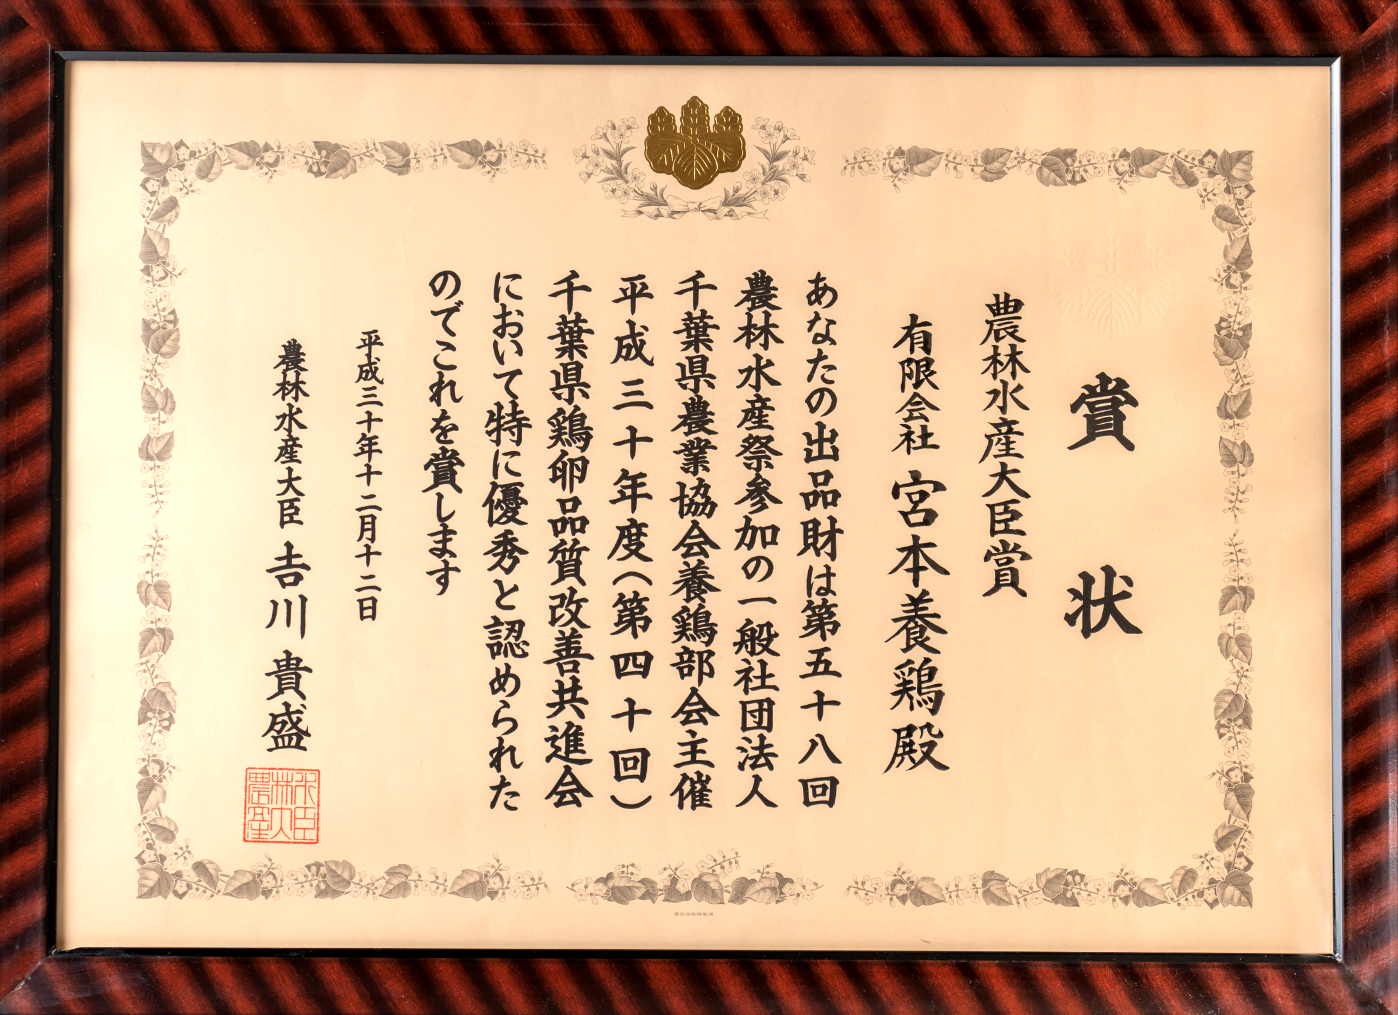 賞状
農林水産大臣賞
有限会社 宮本養鶏殿
あなたの出品財は第五十八回
農林水産祭参加の一般社団法人
千葉県農業協会養鶏部会主催
平成三十年度(第四十回)
千葉県鶏卵品質改善共進会
において特に優秀と認められた
のでこれを賞します
平成三十年十二月十二日
農林水産大臣 𠮷川 貴盛